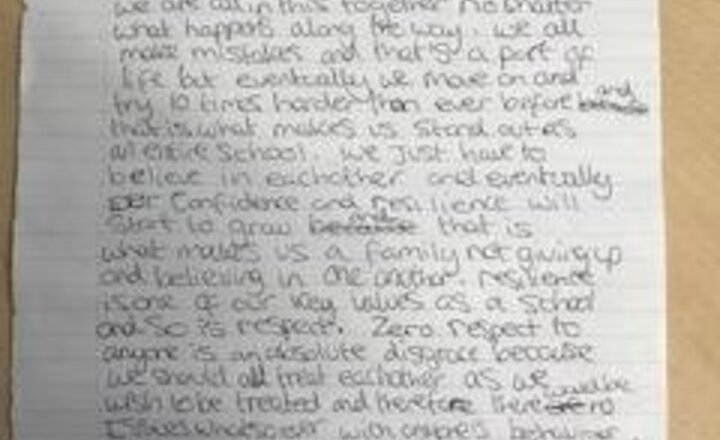 we are all in this together no matter
what happens along the way. we all
make mistakes and that's a part of
life but eventually we move on and
try 10 times harder than ever before and
that is what makes us stand out as
an entire school. we just have to
believe in eachother and eventually
our confidence and resilience will
start to grow and that is
what makes us a family not giving up
and believing in one another. resilience
is one of our key values as a school
and so is respect. Zero respect to
anyone is an absolute disgrace because
we should all treat eachother as we
wish to be treated and therefore there would be no
issues whatsoever with behaviour.